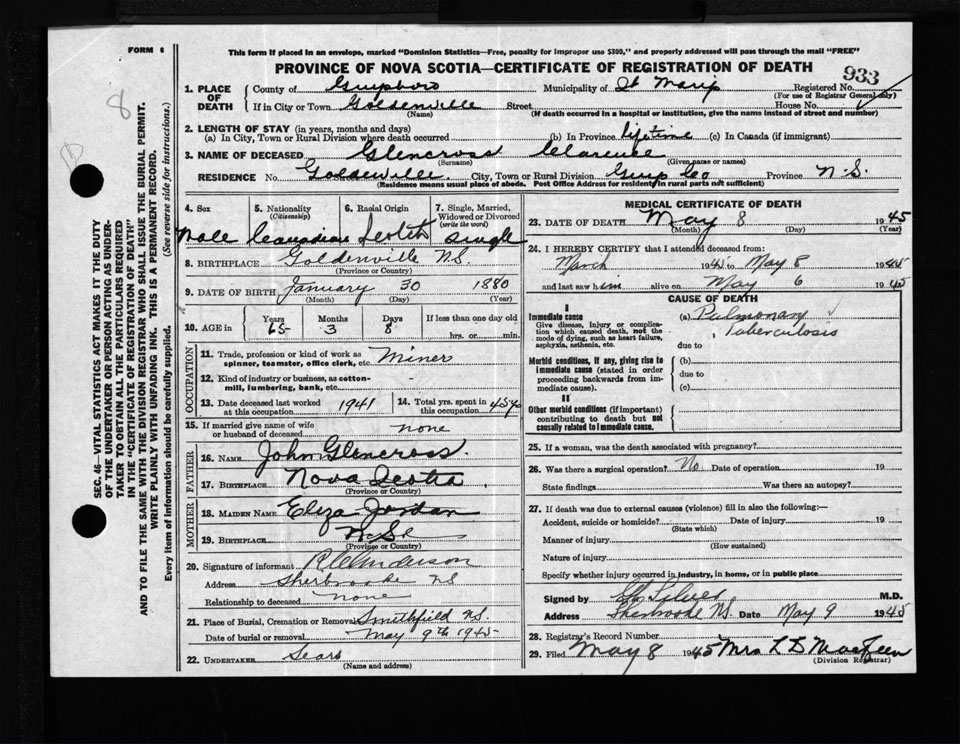 FORM 6
This form if placed in an envelope, marked "Dominion Statistics—Free, penalty for improper use $300," and properly addressed will pass through the mail "FREE"
PROVINCE OF NOVA SCOTIA—CERTIFICATE OF REGISTRATION OF DEATH
933
8
SEC. 46—VITAL STATISTICS ACT MAKES IT THE DUTY
OF THE UNDERTAKER OR PERSON ACTING AS UNDER-
TAKER TO OBTAIN ALL THE PARTICULARS REQUIRED
IN THE "CERTIFICATE OF REGISTRATION OF DEATH"
AND TO FILE THE SAME WITH THE DIVISION REGISTRAR WHO SHALL ISSUE THE BURIAL PERMIT.
WRITE PLAINLY WITH UNFADING INK. THIS IS A PERMANENT RECORD.
Every item of information should be carefully supplied. (See reverse side for instructions.)
1. PLACE OF DEATH
County of Guysboro Municipality of St Marys Registered No.
(For use of Registrar General only)
If in City or Town Goldenville Street House No.
(Name) (If death occurred in a hospital or institution, give the name instead of street and number)
2. LENGTH OF STAY (in years, months and days)
(a) In City, Town or Rural Division where death occurred (b) In Province lifetime (c) In Canada (if immigrant)
3. NAME OF DECEASED Glencross Clarence
(Surname) (Given name or names)
RESIDENCE No. Goldenville City, Town or Rural Division Guys Co Province N.S.
(Residence means usual place of abode. Post Office Address for resident in rural parts not sufficient)
4. Sex 5. Nationality (Citizenship) 6. Racial Origin 7. Single, Married, Widowed or Divorced (write the word)
Male Canadian Scotch single
8. BIRTHPLACE Goldenville N.S.
(Province or Country)
9. DATE OF BIRTH January 30 1880
(Month) (Day) (Year)
10. AGE in Years Months Days If less than one day old
65 3 8 hrs. or min.
OCCUPATION
11. Trade, profession or kind of work as spinner, teamster, office clerk, etc. Miner
12. Kind of industry or business, as cotton-mill, lumbering, bank, etc. -
13. Date deceased last worked at this occupation 1941
14. Total yrs. spent in this occupation 45 yrs
15. If married give name of wife or husband of deceased none
FATHER
16. NAME John Glencross.
17. BIRTHPLACE Nova Scotia
(Province or Country)
MOTHER
18. MAIDEN NAME Eliza Jordan
19. BIRTHPLACE N.S.
(Province or Country)
20. Signature of informant
Address Sherbrooke NS
Relationship to deceased none
21. Place of Burial, Cremation or Removal Smithfield N.S.
Date of burial or removal May 9th 1945
22. UNDERTAKER Sears
(Name and address)
MEDICAL CERTIFICATE OF DEATH
23. DATE OF DEATH May 8 1945
(Month) (Day) (Year)
24. I HEREBY CERTIFY that I attended deceased from:
March 1945 to May 8 1945
and last saw him alive on May 6 1945
CAUSE OF DEATH
I
Immediate cause
Give disease, injury or complication which caused death, not the mode of dying, such as heart failure, asphyxia, asthenia, etc.
(a) Pulmonary Tuberculosis
due to
Morbid conditions, if any, giving rise to immediate cause (stated in order proceeding backwards from immediate cause).
(b)
due to
(c)
II
Other morbid conditions (if important) contributing to death but not causally related to immediate cause.
25. If a woman, was the death associated with pregnancy?
26. Was there a surgical operation? No Date of operation 19
State findings Was there an autopsy?
27. If death was due to external causes (violence) fill in also the following:—
Accident, suicide or homicide? Date of injury 19
(State which)
Manner of injury
(How sustained)
Nature of injury
Specify whether injury occurred in industry, in home, or in public place
Signed by M.D.
Address Sherbrooke N.S. Date May 9 1945
28. Registrar's Record Number
29. Filed May 8 1945 Mrs L D
(Division Registrar)